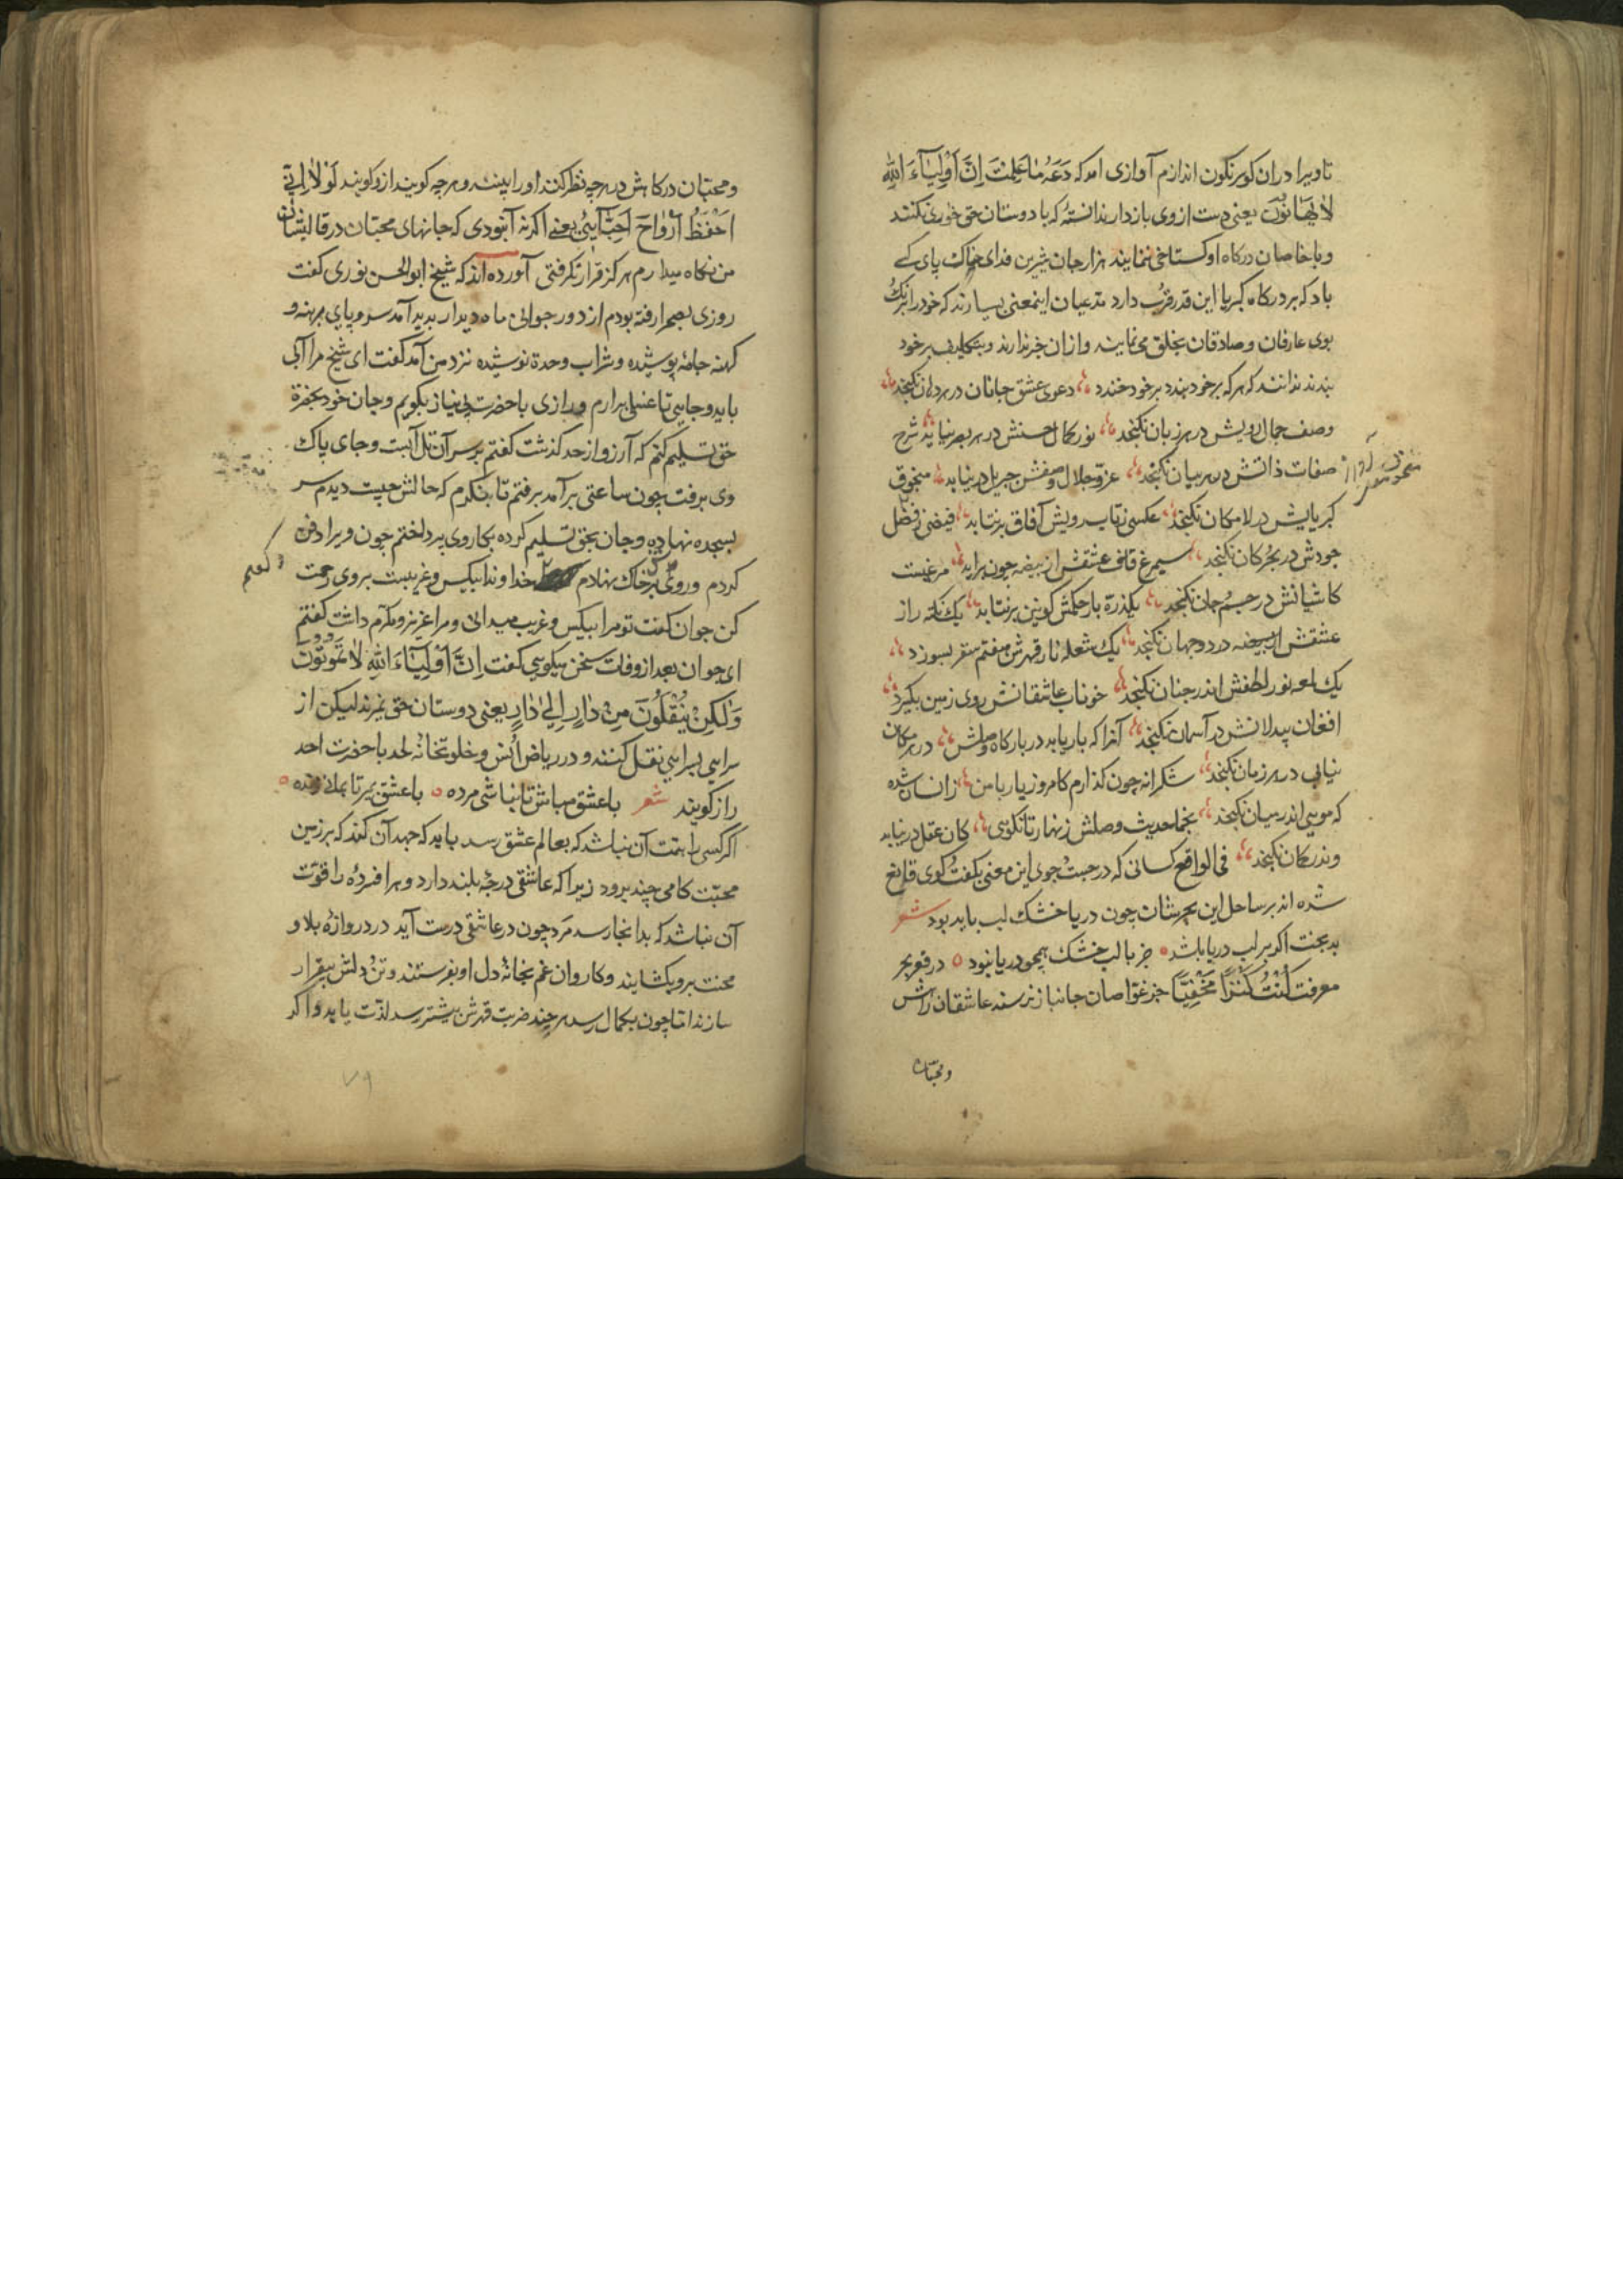 تا ویرا دران کو سرنگون اندازم آوازی آمد که دَعْهُ مٰا عَلِمْتَ اِنَّ اَوْلِیٰآءَ اللّٰهِ
لاٰ یُهٰانُوْنَ یعنی دست از وی بازدار ندانستهٔ که با دوستان حق خواری نکنند
و با خاصان درکاه او کستاخی ننمایند هزار جان شیرین فدای خاک پای کسی
باد که بر درکاه کبریا این قدر قرب دارد مدعیان اینمعنی بسیارند که خود را برنک
بوی عارفان و صادقان بخلق می نمایند و ازان خبر ندارند و بتکلیف بر خود
بندند ندانند که هر که بر خود بندد بر خود خندد دعوی عشق جانان در هر دهان نکنجد
وصف جمال رویش در هر زبان نکنجد نور کمال حسنش در هر بصر نیاید شرح
صفات ذاتش در هر بیان نکنجد عزّ جلال وصفش جبریل درنیابد منجوق
کبریایش در لامکان نکنجد عکسی ز تاب رویش آفاق برنتابد فیضی ز فضل
جودش در بحر کان نکنجد سیمرغ قاف عشقش از بیضه چون براید مرغیست
کاشیانش در جسم جان نکنجد یکذره بار حکمش کونین برنتابد یک نکته راز
عشقش در دو جهان نکنجد یک شعله نار قهرش هفتم سقر بسوزد
یک لمعه نور لطفش اندر جنان نکنجد خوناب عاشقانش روی زمین بکیرد
افغان بیدلانش در آسمان نکنجد آنرا که بار یابد در بارکاه وصلش در هر مکان
نیابی در هر زمان نکنجد شکرانه چون کذارم کامروز یار با من زانسان شده
که مویی اندر میان نکنجد نجما حدیث وصلش زنهار تا نکویی کان عقل درنیابد
وندر کمان نکنجد فی الواقع کسانی که در جست جوی این معنی بکفت کوی قانع
شده اند بر ساحل این بحر شان چون دریا خشک لب باید بود شعر
بدبخت اکر بر لب دریا باشد جز با لب خشک همچو دریا نبود در قعر بحر
معرفت کُنْتُ کَنْزًا مَخْفِیًّا جز غواصان جانباز نرسند عاشقان راش
و محبّان
و محبّان درکاهش در هر چه نظر کنند او را بینند و هر چه کویند ازو کویند لَوْلاٰ اِنّی
اَحْفَظُ اَرْوٰاحَ اَحِبّٰآئی یعنی اکر نه آنبودی که جانهای محبّان در قالبشان
من نکاه میدارم هرکز قرار نکرفتی آورده اند که شیخ ابوالحسن نوری کفت
روزی بصحرا رفته بودم از دور جوانی ماه دیدار بدید آمد سر و پای برهنه و
کهنه جامهٔ پوشیده و شراب وحدة نوشیده نزد من آمد کفت ای شیخ مرا آبی
باید و جایی تا غسلی برارم و رازی با حضرت بی نیاز بکویم و جان خود بحضرة
حق تسلیم کنم که آرزو از حد کذشت کفتم بر سر آن تل آبست و جای پاک
وی برفت چون ساعتی برآمد برفتم تا بنکرم که حالش چیست دیدم سر
بسجده نهاده و جان بحق تسلیم کرده بکار وی پرداختم چون ویرا دفن
کردم و روی بر خاک نهادم خداوندا بیکس و غریبست بر وی رحمت
و کفتم
کن جوان کفت تو مرا بیکس و غریب میدانی و مرا عزیز و مکرم داشت کفتم
ای جوان بعد از وفات سخن میکویی کفت اِنَّ اَوْلِیٰآءَ اللّٰهِ لاٰ یَمُوْتُوْنَ
وَلٰکِنْ یُنْقَلُوْنَ مِنْ دٰارٍ اِلیٰ دٰارٍ یعنی دوستان حق نمیرند لیکن از
سرایی بسرایی نقل کنند و در ریاض انس و خلوتخانهٔ لحد با حضرت احد
راز کویند شعر با عشق مباش تا نباشی مرده با عشق بمیر تا بمانی زنده
اکر کسی را همت آن نباشد که بعالم عشق رسد باید که جهد آن کند که بر زمین
محبّت کامی چند برود زیرا که عاشقی درجهٔ بلند دارد و هر افسرده را قوّت
آن نباشد که بدانجا رسد مرد چون در عاشقی درست آید در دروازهٔ بلا و
محنت برو بکشایند و کاروان غم بخانهٔ دل او بفرستند و تن و دلش بیقرار
سازند اما چون بکمال رسد هر چند ضربت قهرش بیشتر رسد لذّت یابد و اکر
۷۹